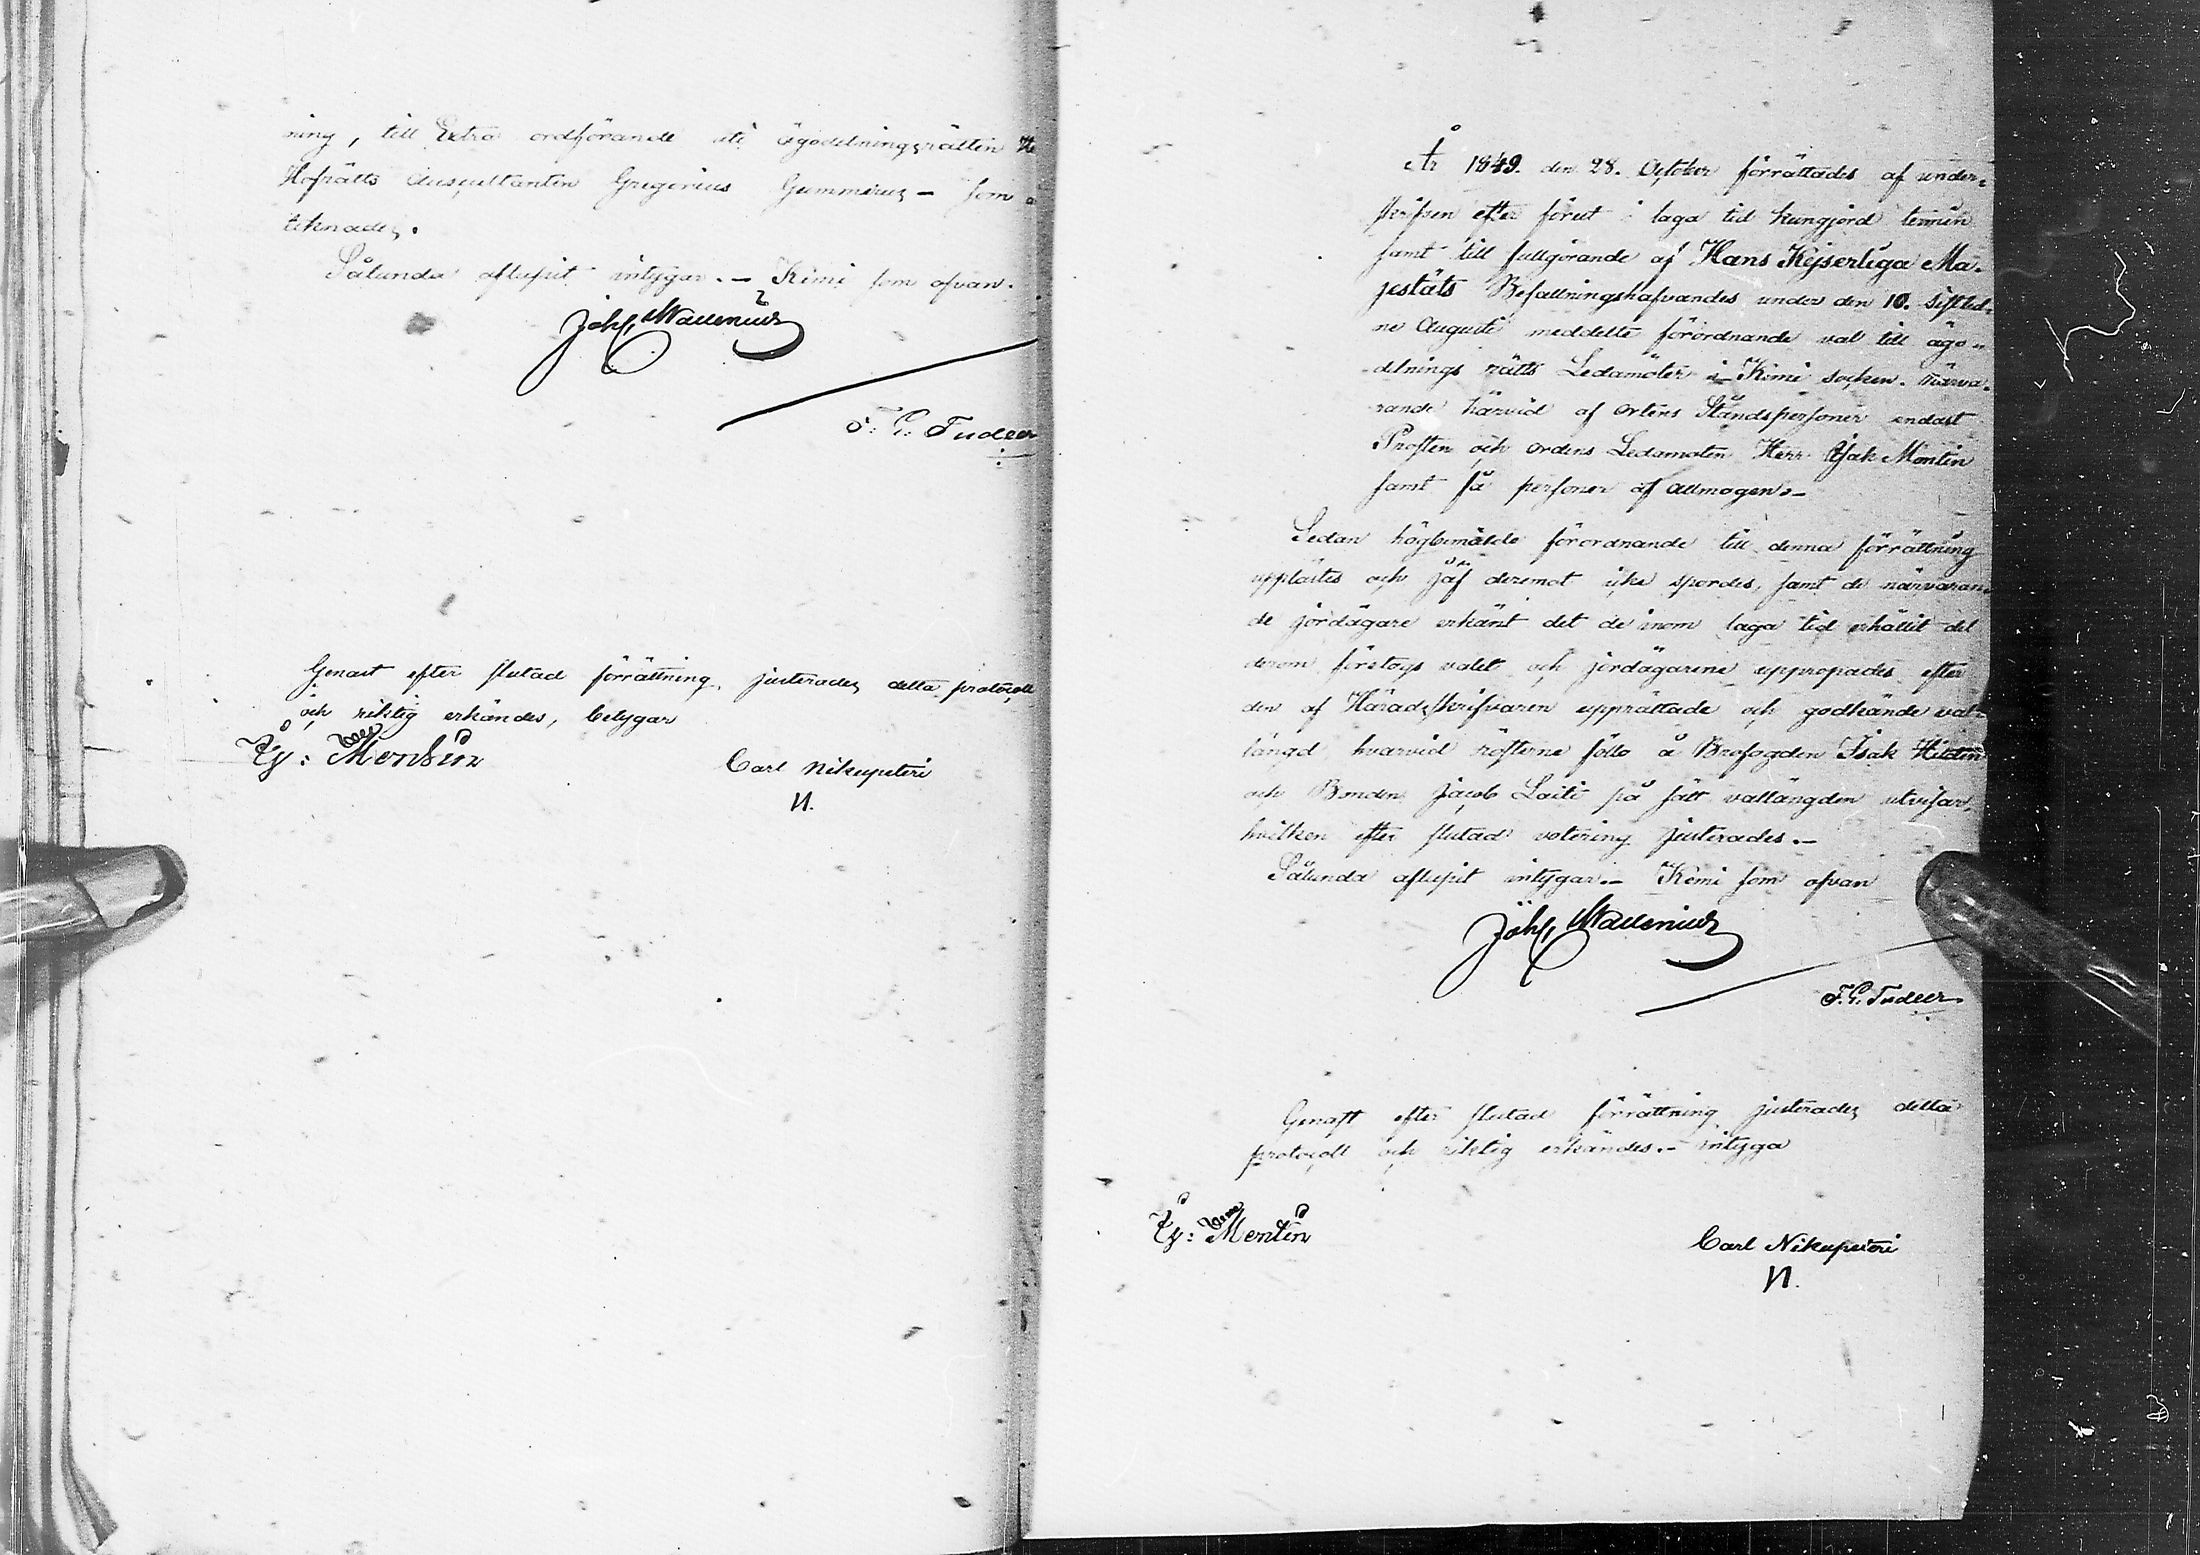 ning, till Extra ordförande uti ägodelningsrätten
Hofrätts Auscultanten Gregorius Gummerus – som
teknades.
Sålunda aflupit intygar. – Kimi som ofvan.
Joh. Wallenius
F. G. Tudeer
Genast efter slutad förrättning, justerades detta protocoll
och riktig erkändes, betygar
Montin
Carl Nikupeteri
N.
År 1849. den 28. October förrättades af under-
skrifven efter förut i laga tid kungjord termin
samt till fullgörande af Hans Kejserliga Ma-
jestäts Befallningshafvandes under den 10. sistled-
ne Augusti meddelte förordnande val till ägo-
delnings rätts Ledamöter i Kimi socken. Närva-
rande härvid af ortens Ståndspersoner endast
Prosten och ordens Ledamoten Herr Isak Montin
samt få personer af Allmogen. –
Sedan högbemälde förordnande till denna förrättning
upplästes och jäf deremot icke spordes, samt de närvaran-
de jordägare erkänt det de inom laga tid erhållit del
derom företogs valet och jordägarene uppropades efter
den af Häradsskrifvaren upprättade och godkände val-
längd hvarvid rösterne föllo å Brofogden Isak Hilden
och Bonden Jacob Laiti på sätt vallängden utvisar,
hvilken efter slutad votering justerades. –
Sålunda aflupit intygar. – Kimi som ofvan
Joh. Wallenius
F. G. Tudeer
Genast efter slutad förrättning justerades detta
protocoll och riktig erkändes. – intyga
Montin
Carl Nikupeteri
N.